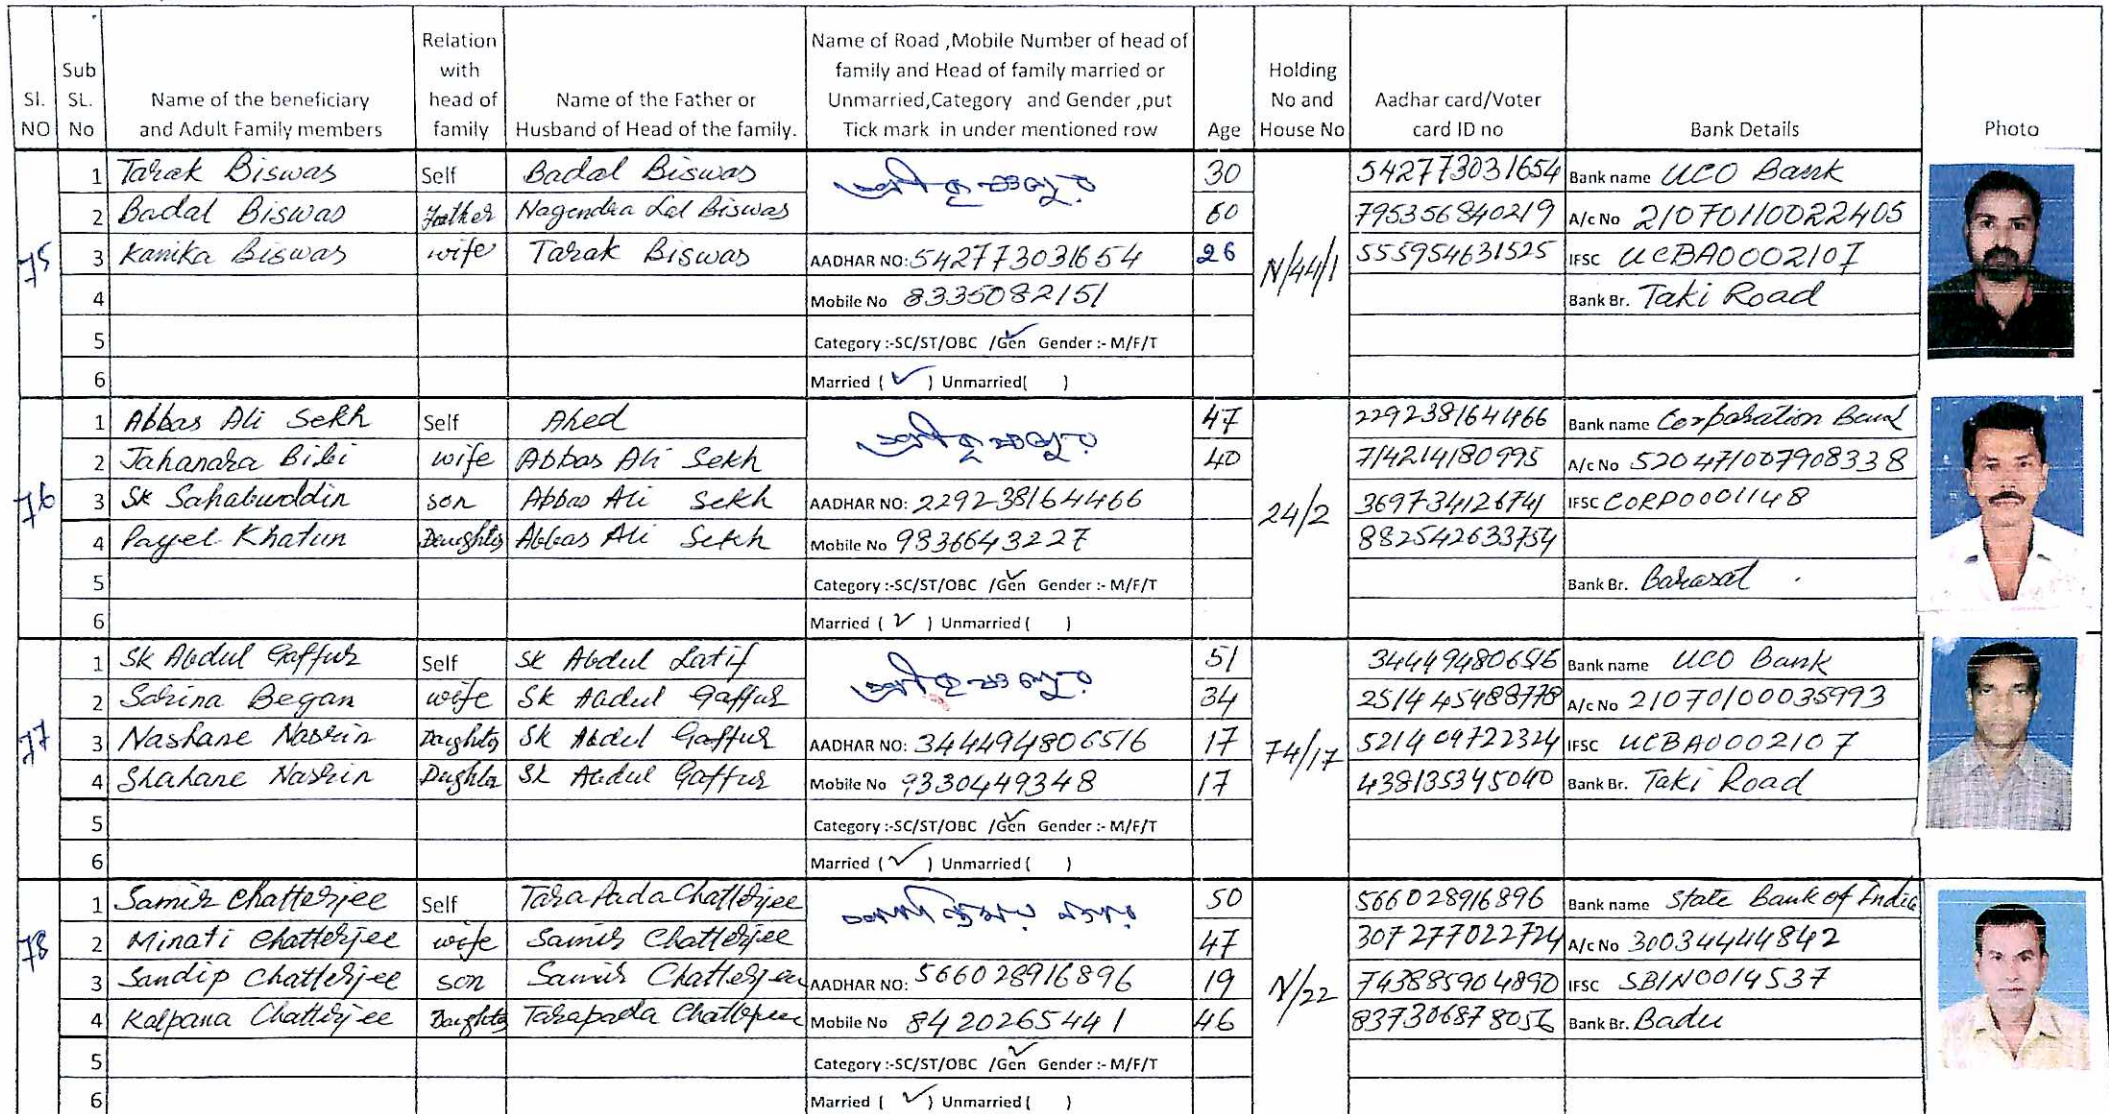 Sl. NO	Sub SL. No	Name of the beneficiary and Adult Family members	Relation with head of family	Name of the Father or Husband of Head of the family.	Name of Road ,Mobile Number of head of family and Head of family married or Unmarried,Category and Gender ,put Tick mark in under mentioned row	Age	Holding No and House No	Aadhar card/Voter card ID no	Bank Details	Photo
75	1	Tarak Biswas	Self	Badal Biswas	30	N/44/1	542773031654	Bank name UCO Bank
2	Badal Biswas	Father	Nagendra Lal Biswas	60	795356840219	A/c No 21070110022405
3	Kanika Biswas	wife	Tarak Biswas	AADHAR NO: 542773031654	26	555954631525	IFSC UCBA0002107
4	Mobile No 8335082151	Bank Br. Taki Road
5	Category :-SC/ST/OBC /Gen Gender :- M/F/T
6	Married ( ✓ ) Unmarried( )
76	1	Abbas Ali Sekh	Self	Ahed	47	24/2	229238164466	Bank name Corporation Bank
2	Jahanara Bibi	wife	Abbas Ali Sekh	40	714214180995	A/c No 520471007908338
3	Sk Sahabuddin	son	Abbas Ali Sekh	AADHAR NO: 229238164466	369734126741	IFSC CORP0001148
4	Payel Khatun	Daughter	Abbas Ali Sekh	Mobile No 9836643227	882542633754
5	Category :-SC/ST/OBC /Gen Gender :- M/F/T	Bank Br. Barasat
6	Married ( ✓ ) Unmarried ( )
77	1	Sk Abdul Gaffur	Self	Sk Abdul Latif	51	74/17	344494806516	Bank name UCO Bank
2	Sarina Began	wife	Sk Abdul Gaffur	34	251445488778	A/c No 21070100035993
3	Nashane Nasrin	Daughter	Sk Abdul Gaffur	AADHAR NO: 344494806516	17	521409722324	IFSC UCBA0002107
4	Shahane Nasrin	Dughter	Sk Abdul Gaffur	Mobile No 9330449348	17	438135345040	Bank Br. Taki Road
5	Category :-SC/ST/OBC /Gen Gender :- M/F/T
6	Married ( ✓ ) Unmarried ( )
78	1	Samir Chatterjee	Self	Tara Pada Chatterjee	50	N/22	566028916896	Bank name State Bank of India
2	Minati Chatterjee	wife	Samir Chatterjee	47	307277022724	A/c No 30034444842
3	Sandip Chatterjee	son	Samir Chatterjee	AADHAR NO: 566028916896	19	743885904890	IFSC SBIN0014537
4	Kalpana Chatterjee	Daughter	Tarapada Chatterjee	Mobile No 8420265441	46	837306878056	Bank Br. Badu
5	Category :-SC/ST/OBC /Gen Gender :- M/F/T
6	Married ( ✓ ) Unmarried ( )